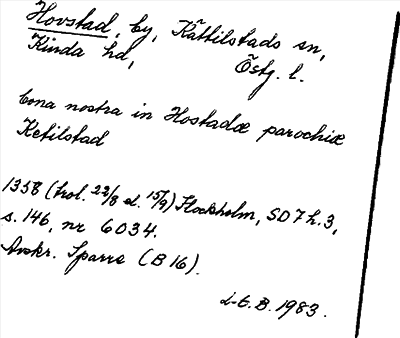 Hovstad, by, Kättilstads sn,
Kinda hd, Östg. l.
bona nostra in Hostadæ parochiæ
Ketilstad
1358 (trol. 22/8 el. 15/9) Stockholm, SD 7 h. 3,
s. 146, nr 6034.
Avskr. Sparre (B 16).
L-E. B. 1983.